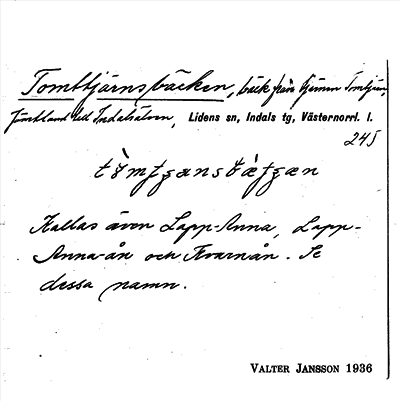 Tomttjärnsbäcken, bäck från tjärnen Tomttjärn,
Jämtland till Indalsälven, Lidens sn, Indals tg, Västernorrl. l.
245
Kallas även Lapp-Anna, Lapp-
Anna-ån och Kvarnån. Se
dessa namn.
VALTER JANSSON 1936